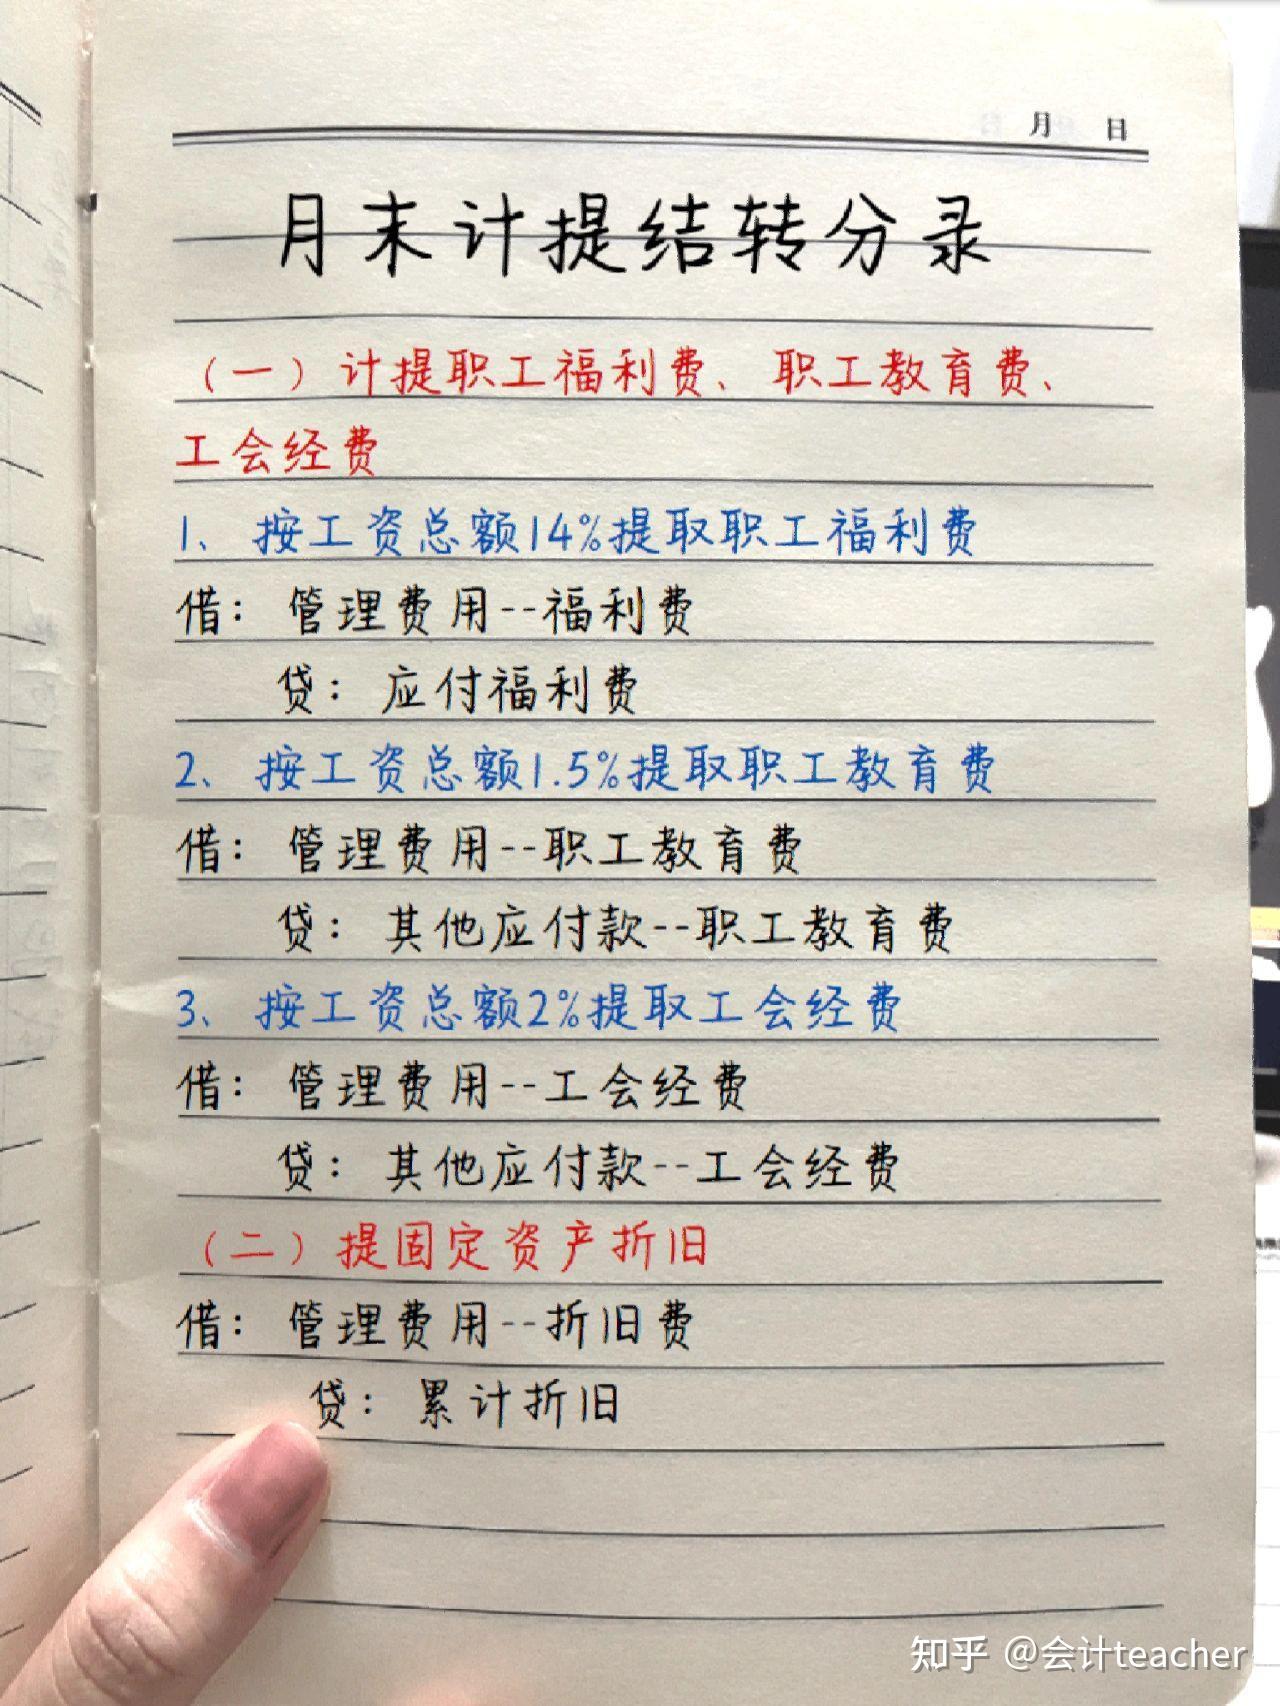 月 日
月末计提结转分录
（一）计提职工福利费、职工教育费、
工会经费
1、按工资总额14%提取职工福利费
借：管理费用--福利费
贷：应付福利费
2、按工资总额1.5%提取职工教育费
借：管理费用--职工教育费
贷：其他应付款--职工教育费
3、按工资总额2%提取工会经费
借：管理费用--工会经费
贷：其他应付款--工会经费
（二）提固定资产折旧
借：管理费用--折旧费
贷：累计折旧
知乎 @会计teacher